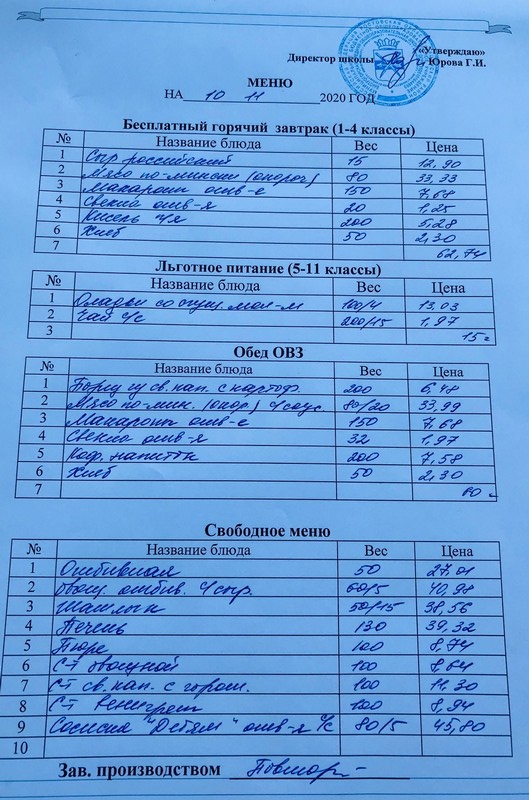 «Утверждаю»
Директор школы Юрова Г.И.
МЕНЮ
НА 10 11 2020 ГОД
Бесплатный горячий завтрак (1-4 классы)
№ Название блюда Вес Цена
1 Сыр российский 15 12,90
2 Мясо по-мински (окороч) 80 33,33
3 Макароны отв-е 150 7,68
4 Свекла отв-я 20 1,25
5 Кисель 200 5,28
6 Хлеб 50 2,30
7 62,74
Льготное питание (5-11 классы)
№ Название блюда Вес Цена
1 Оладьи со сгущ. мол-м 100/4 13,03
2 Чай с/с 200/15 1,97
3 15
Обед ОВЗ
№ Название блюда Вес Цена
1 Борщ св. кап. с картоф. 200 6,48
2 Мясо по-мин. (окор.) соус. 80/20 33,99
3 Макароны отв-е 150 7,68
4 Свекла отв-я 32 1,97
5 Коф. напиток 200 7,58
6 Хлеб 50 2,30
7
Свободное меню
№ Название блюда Вес Цена
1 Отбивная 50 27,01
2 отбив. 60/5 40,98
3 Шашлык 50/15 38,56
4 Печень 130 39,32
5 Пюре 100 8,74
6 С-т овощной 100 8,64
7 С-т св. кап. с горош. 100 11,30
8 С-т Венегрет 100 8,94
9 Сосиска "Детям" отв-я 80/5 45,80
10
Зав. производством